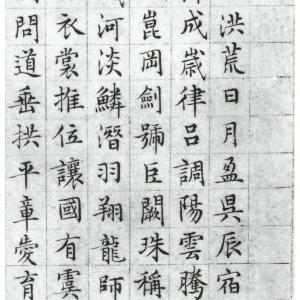 洪荒日月盈昃辰宿
成歲律呂調陽雲騰
崑岡劍號巨闕珠稱
河淡鱗潛羽翔龍師
衣裳推位讓國有虞
問道垂拱平章愛育